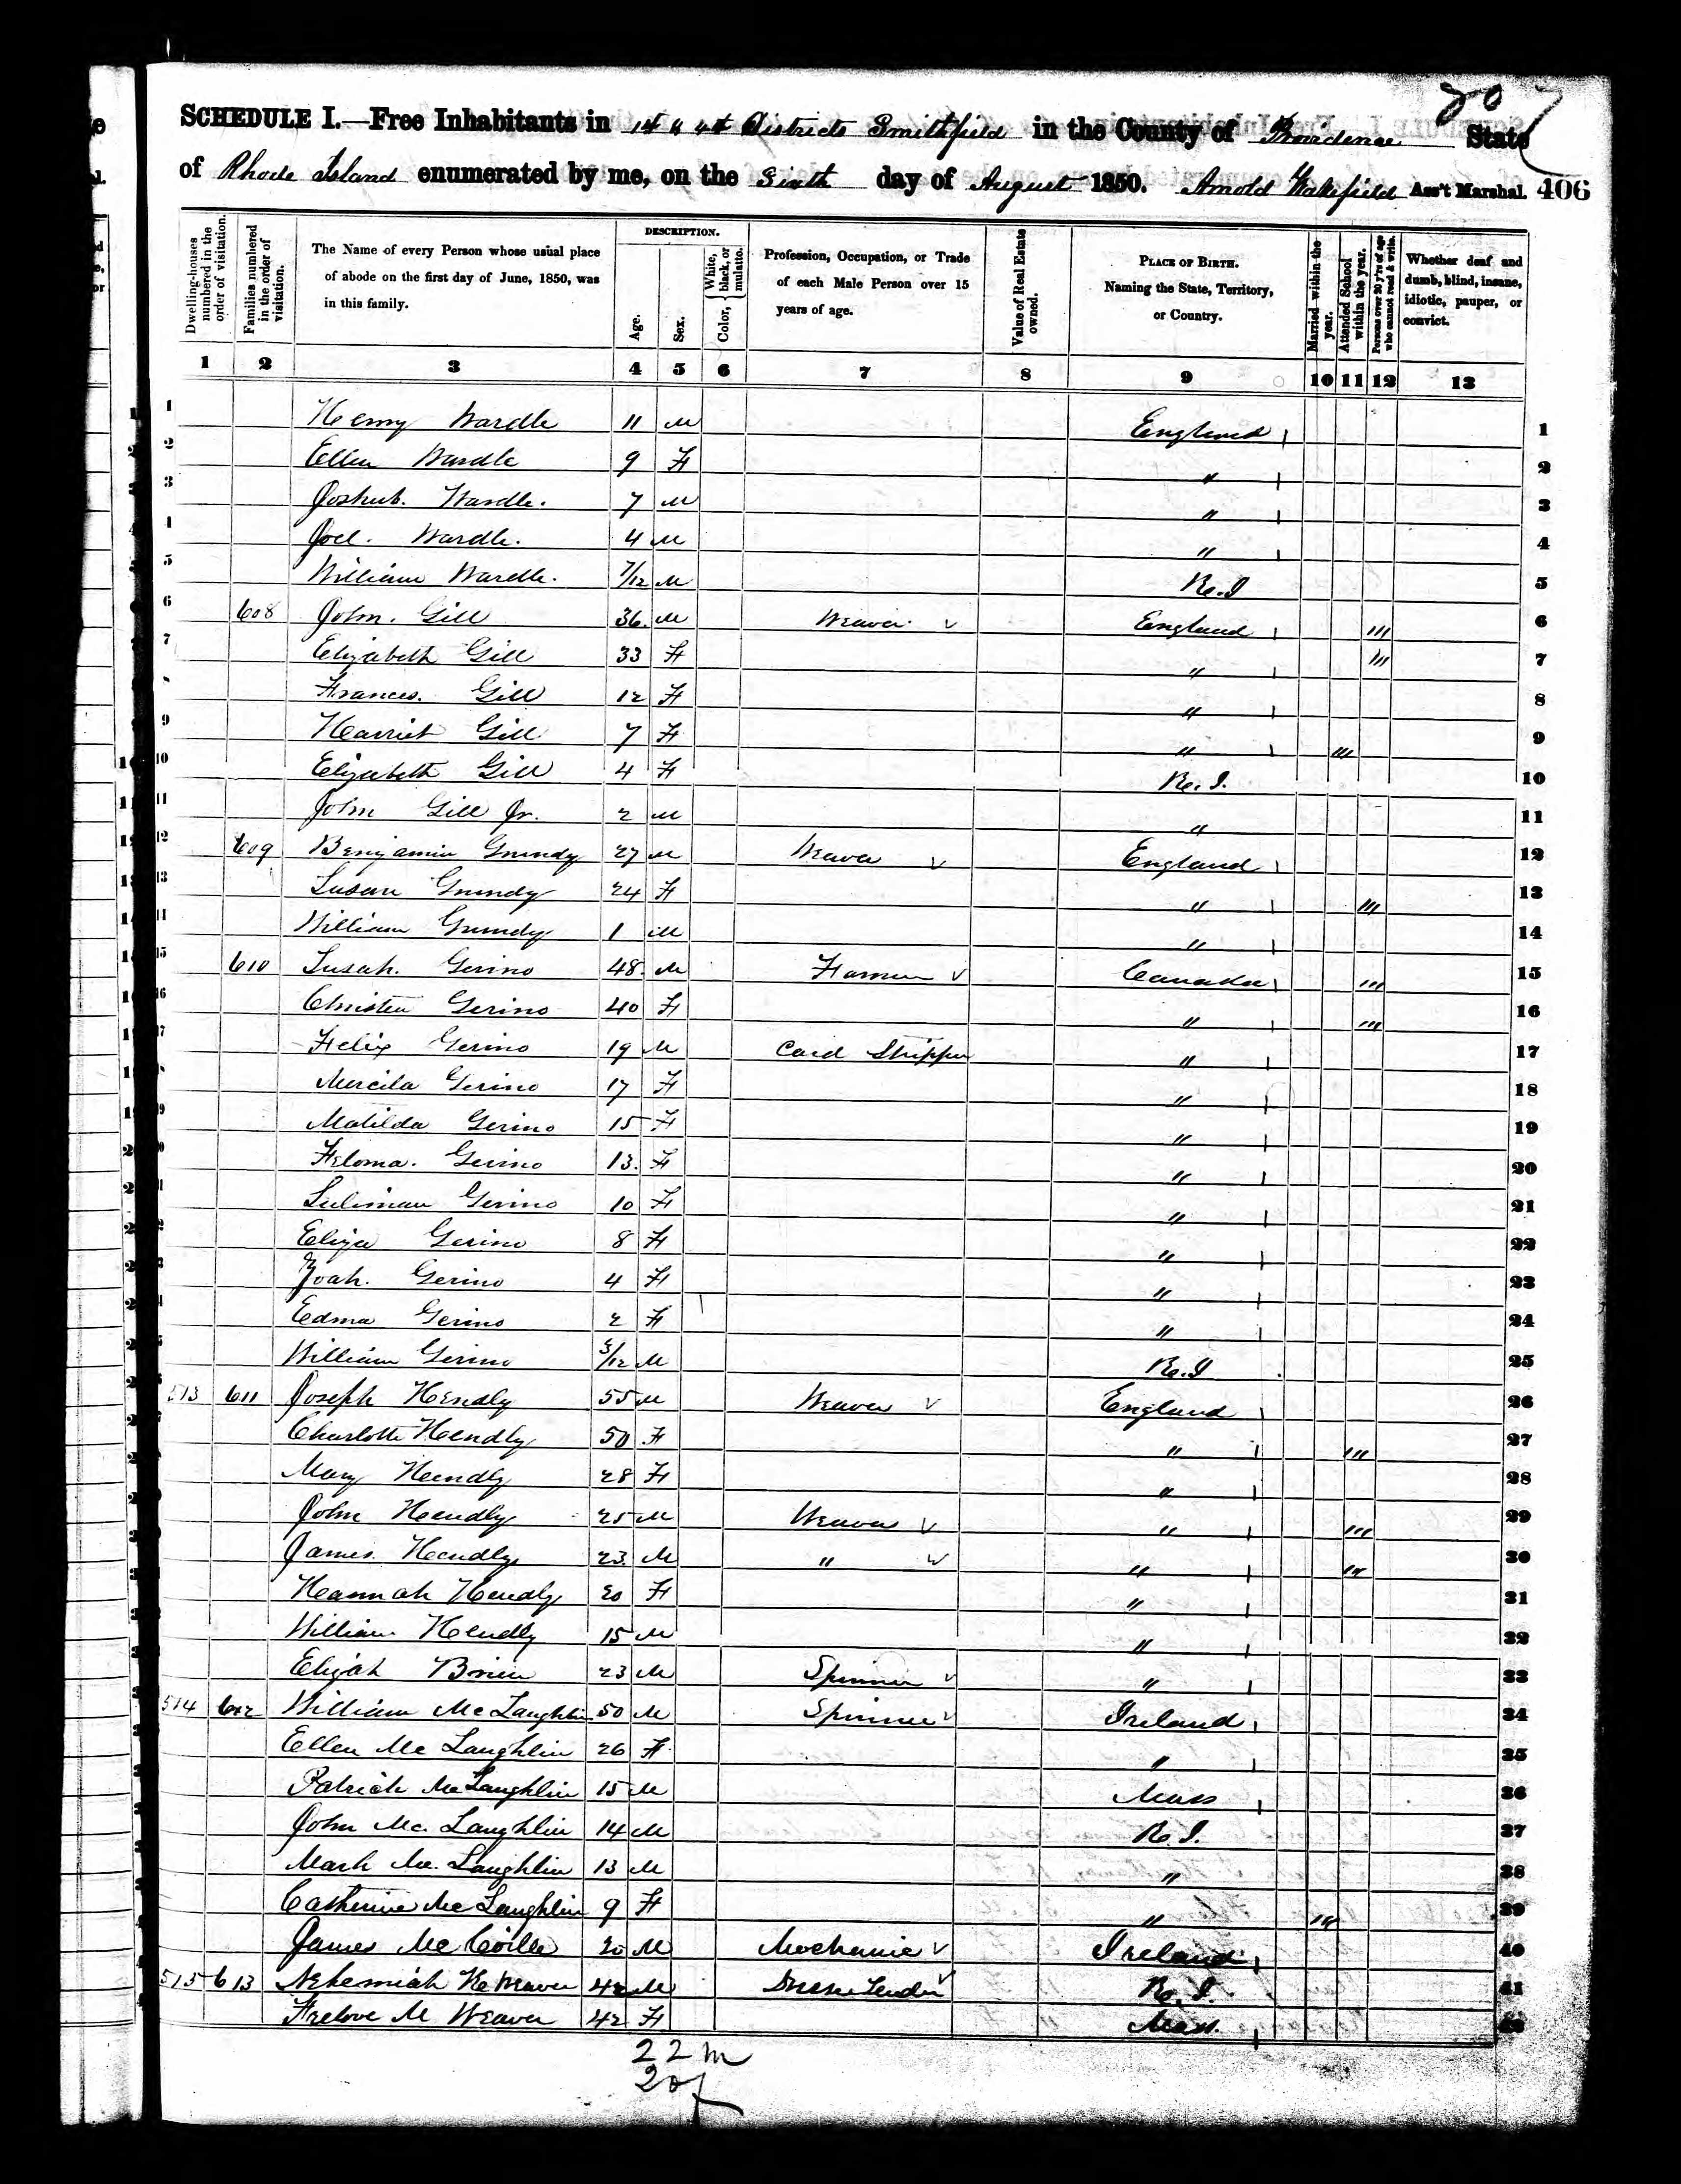 207
SCHEDULE I.—Free Inhabitants in 1st & 4th Districts Smithfield in the County of Providence State
of Rhode Island enumerated by me, on the Sixth day of August 1850. Arnold Wakefield Ass't Marshal. 406
Dwelling-houses numbered in the order of visitation.
Families numbered in the order of visitation.
The Name of every Person whose usual place of abode on the first day of June, 1850, was in this family.
DESCRIPTION.
Age.
Sex.
Color, { White, black, or mulatto.
Profession, Occupation, or Trade of each Male Person over 15 years of age.
Value of Real Estate owned.
PLACE OF BIRTH. Naming the State, Territory, or Country.
Married within the year.
Attended School within the year.
Persons over 20 y'rs of age who cannot read & write.
Whether deaf and dumb, blind, insane, idiotic, pauper, or convict.
1 2 3 4 5 6 7 8 9 10 11 12 13
1 Henry Wardle 11 M England 1
2 Ellen Wardle 9 F " 2
3 Joshub. Wardle. 7 M " 3
4 Joel. Wardle. 4 M " 4
5 William Wardle. 7/12 M R. I 5
6 608 John. Gill 36. M Weaver England 6
7 Elizabeth Gill 33 F " 7
Frances. Gill 12 F " 8
9 Harriet Gill 7 F " 9
10 Elizabeth Gill 4 F R. I. 10
11 John Gill Jr. 2 M " 11
12 609 Benjamin Grundy 27 M Weaver England 12
13 Susan Grundy 24 F " 13
14 William Grundy 1 M " 14
15 610 Susah. Gerino 48. M Farmer Canada 15
16 Christen Gerino 40 F " 16
17 Felix Gerino 19 M Card Stripper " 17
Mercila Gerino 17 F " 18
Matilda Gerino 15 F " 19
Feloma. Gerino 13. F " 20
Gerino 10 F " 21
Eliza Gerino 8 F " 22
Zoah. Gerino 4 F " 23
Edma Gerino 2 F " 24
William Gerino 3/12 M R. I 25
513 611 Joseph Hendly 55 M Weaver England 26
Charlotte Hendly 50 F " 27
Mary Hendly 28 F " 28
John Hendly 25 M Weaver " 29
James. Hendly 23. M " " 30
Hannah Hendly 20 F " 31
William Hendly 15 M " 32
Elijah 23 M Spinner " 33
514 612 William McLaughlin 50 M Spinner Ireland 34
Ellen Mc Laughlin 26 F " 35
Patrick McLaughlin 15 M Mass 36
John Mc. Laughlin 14 M R. I. 37
Mark Mc. Laughlin 13 M " 38
Catherine Mc Laughlin 9 F " 39
James 20 M Mechanic Ireland 40
515 613 Nehemiah Weaver 42 M Tender R. I. 41
Frelove M Weaver 42 F Mass. 42
22 m
20 f